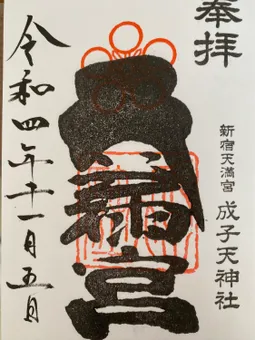 奉拝
新宿天満宮 成子天神社
宮
令和四年十一月五日